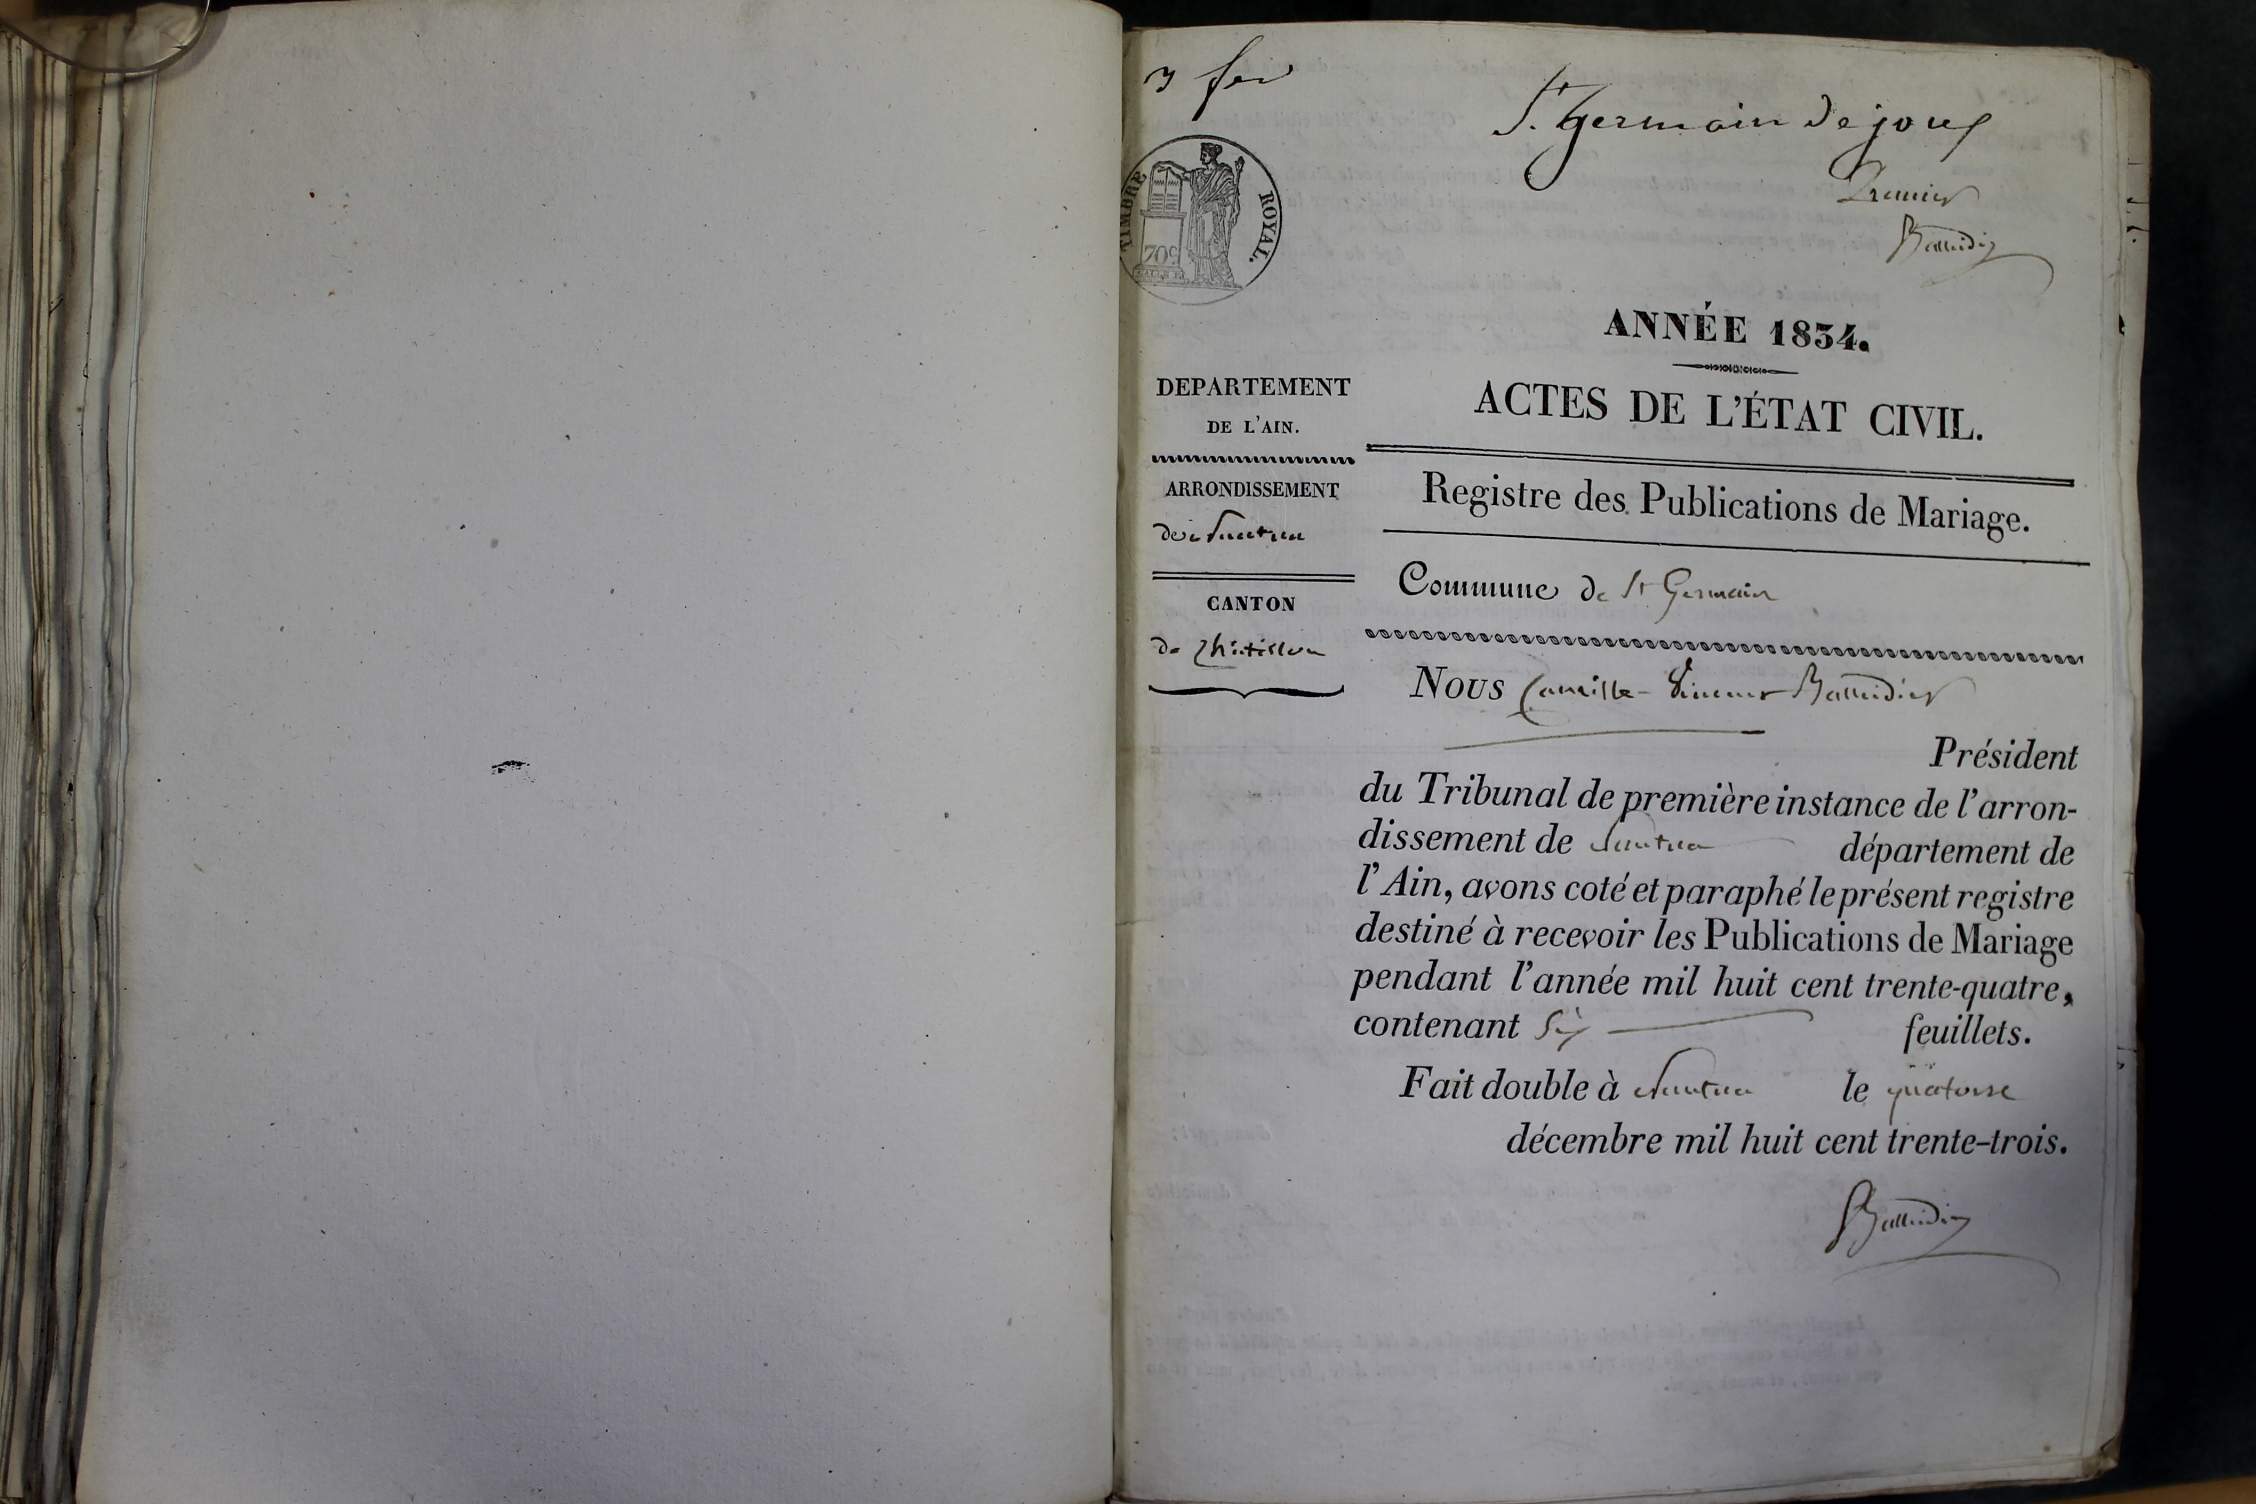 3 fev
St Germain de joux
Premier
TIMBRE ROYAL.
70c
ANNÉE 1834.
ACTES DE L'ÉTAT CIVIL.
DEPARTEMENT
DE L'AIN.
ARRONDISSEMENT
de Nantua
CANTON
de Châtillon
Registre des Publications de Mariage.
Commune de St Germain
Nous Camille
Président
du Tribunal de première instance de l'arron-
dissement de Nantua département de
l'Ain, avons coté et paraphé le présent registre
destiné à recevoir les Publications de Mariage
pendant l'année mil huit cent trente-quatre,
contenant six feuillets.
Fait double à Nantua le quatorze
décembre mil huit cent trente-trois.